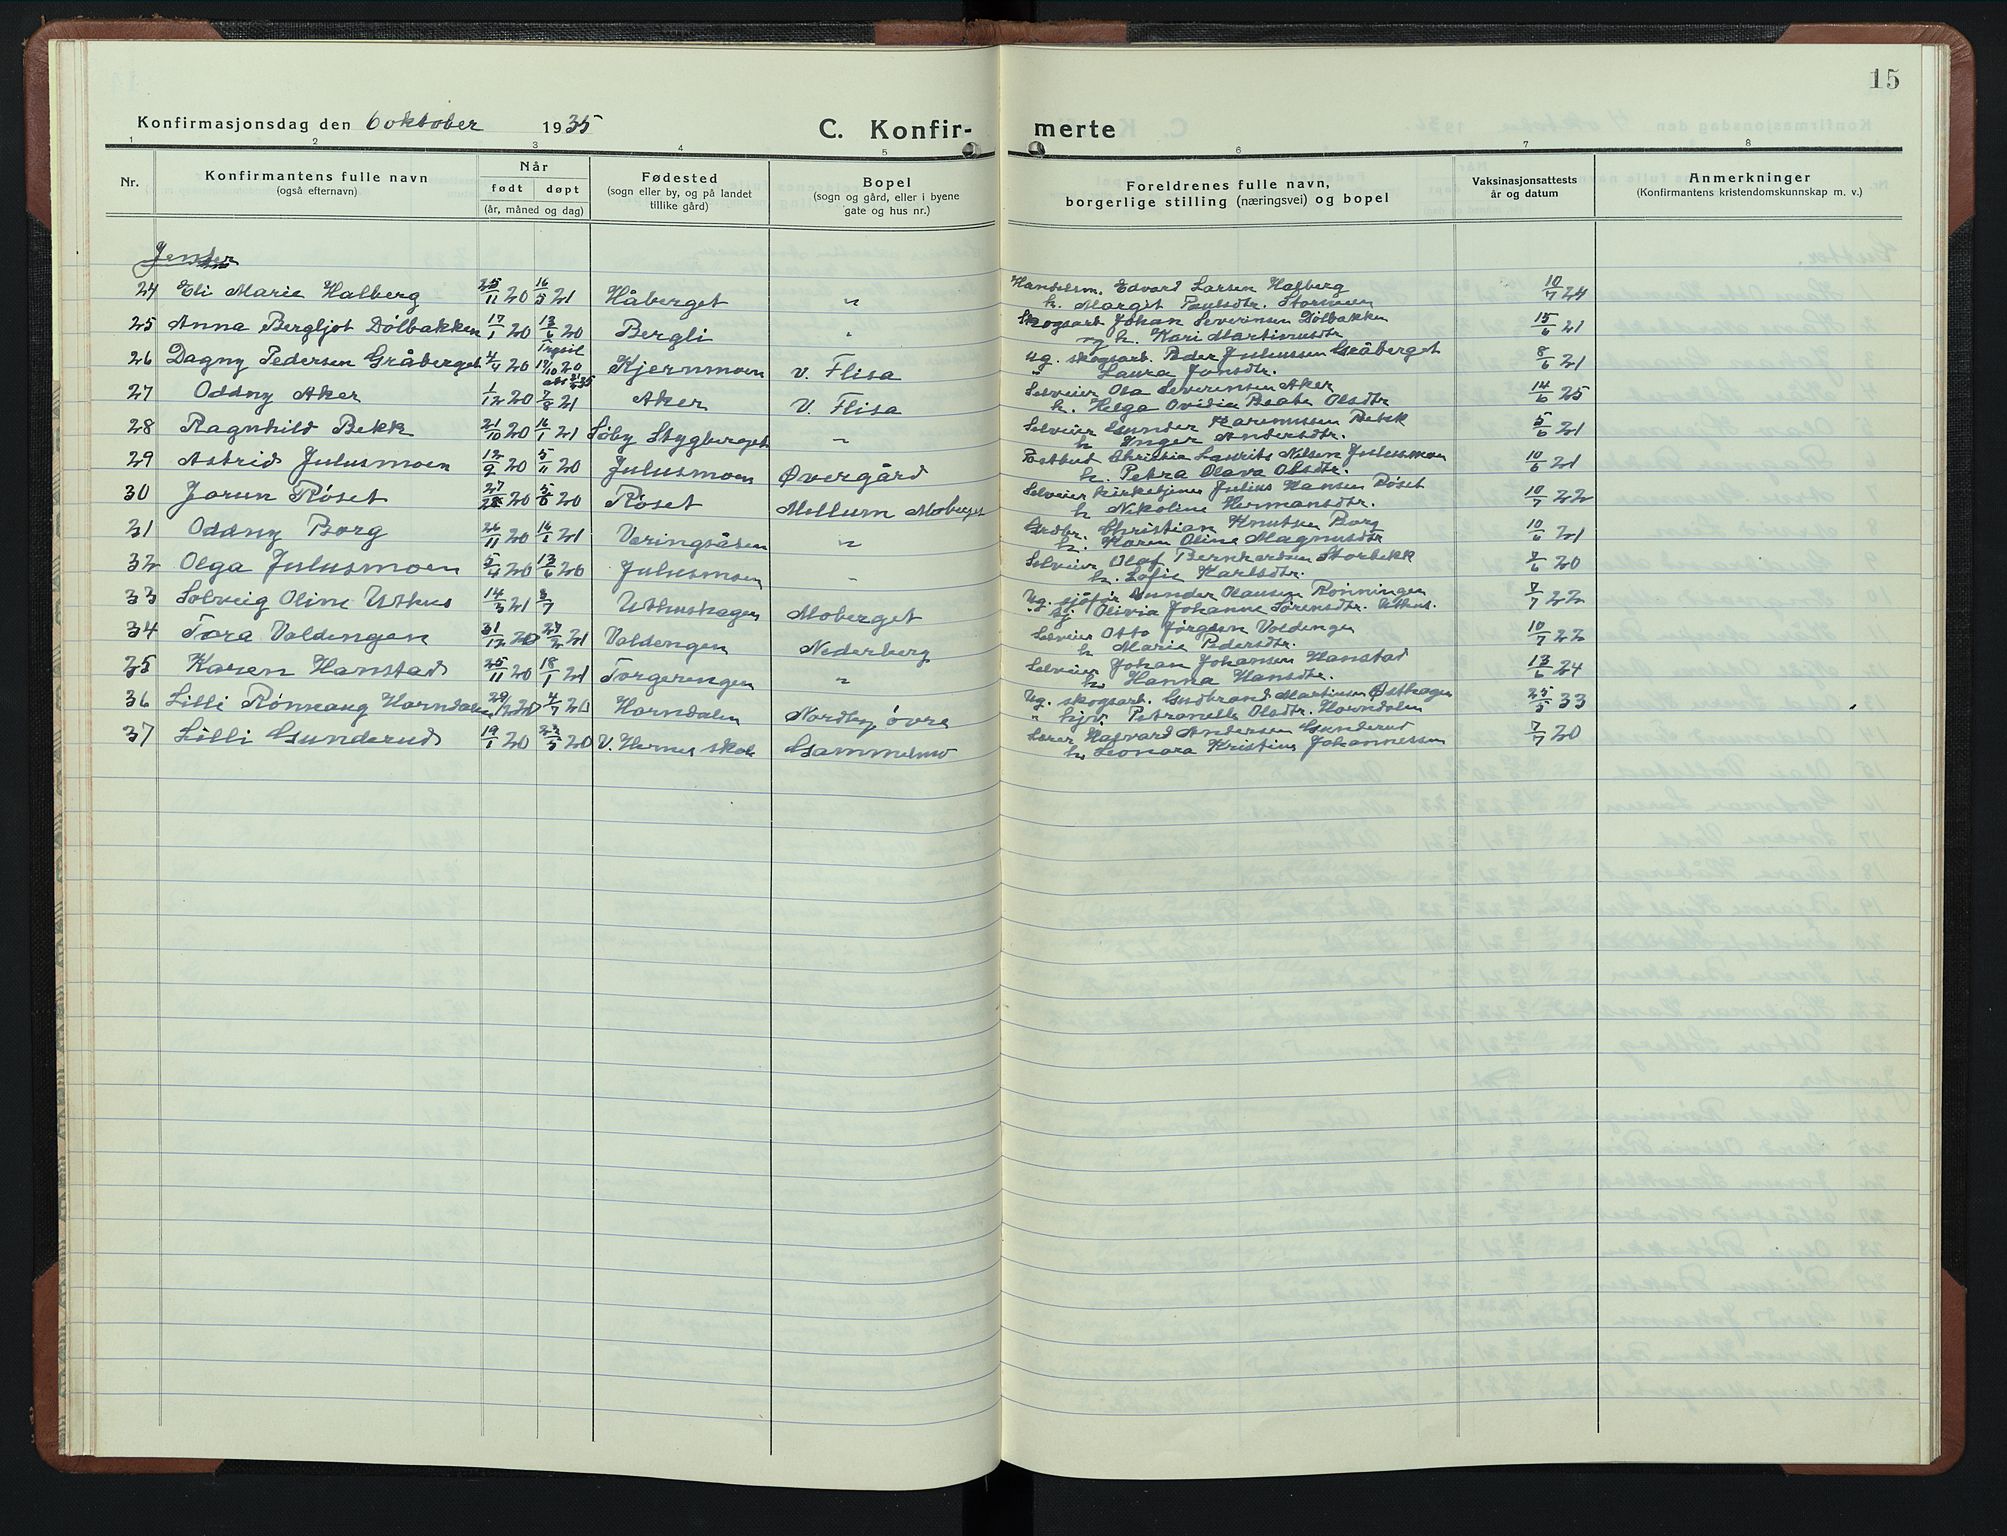 15
Konfirmasjonsdag den 6 oktober 1935
C. Konfir- merte
1 2 3 4 5 6 7 8
Nr.
Konfirmantens fulle navn
(også efternavn)
Når
født døpt
(år, måned og dag)
Fødested
(sogn eller by, og på landet
tillike gård)
Bopel
(sogn og gård, eller i byene
gate og hus nr.)
Foreldrenes fulle navn,
borgerlige stilling (næringsvei) og bopel
Vaksinasjonsattests
år og datum
Anmerkninger
(Konfirmantens kristendomskunnskap m. v.)
Jenter
24 Eli Marie Halberg 25/11 20 16/5 21 Håberget " Handelsm. Edvard Larsen Halberg 10/7 24
h. Margit Paulsdtr. Stormoen
25 Anna Bergljot Dølbakken 17/1 20 13/6 20 Bergli " Skogsarb Johan Severinsen Dølbakken 15/6 21
og h. Kari Martinusdtr
26 Dagny Pedersen Gråberget 4/4 20 Trysil 19/10 20 Kjernmoen v. Flisa ug. skogsarb. Peder Juliussen Gråberget 8/6 21
" Laura Jonsdtr.
27 Oddny Aker 1/12 20 7/8 21 Aker V. Flisa Selveier Ola Severinsen Aker 14/6 25
h. Helga Ovidia Beate Olsdtr
28 Ragnhild Bekk 21/10 20 16/1 21 Søby Stygberget " Selveier Gunder Karenussen Bekk 5/6 21
h Inger Andersdtr.
29 Astrid Julusmoen 12/9 20 5/11 20 Julusmoen Øvergård Postbud Christia Laurits Nilsen Julusmoen 10/6 21
h. Petra Olava Olsdtr.
30 Jorun Røset 20 20 Røset Mellum Moberget Selveier kirketjener Julius Hansen Røset 10/7 22
h Nikoline Hermansdtr.
31 Oddny Borg 26/11 20 16/1 21 Veringsåsen " Grdbr. Christian Knutsen Borg 10/6 21
h. Karen Oline Magnusdtr
32 Olga Julusmoen 5/4 20 13/6 20 Julusmoen " Selveier Olaf Bernhardsen Storbekk 7/6 20
h. Sofie Karlsdtr.
33 Solveig Oline Uthus 14/3 21 3/7 Uthushagen Moberget Ug. sjåfør Gunder Olausen Rønningen 7/7 22
" pj Olivia Johanne Sørensdtr. Uthus.
34 Tora Voldengen 31/12 20 27/2 21 Voldengen Nederberg Selveier Otto Jørgsen Voldengen 10/7 22
h Marie Pedersdtr.
35 Karen Hanstad 25/11 20 18/1 21 Torgerengen " Selveier Johan Johansen Hanstad 13/6 24
h. Hanna Hansdtr.
36 Lilli Rønnaug Horndalen 29/1 20 4/7 20 Horndalen Nordby øvre Ug. skogsarb. Gudbrand Martinsen Østhagen 25/5 33
" hjv. Petronelle Olsdtr. Horndalen
37 Lilli Gunderud 19/1 20 23/5 20 V. Hernes skole Gammelmo Lærer Halvard Andersen Gunderud 7/7 20
h. Leonora Kristine Johannessen